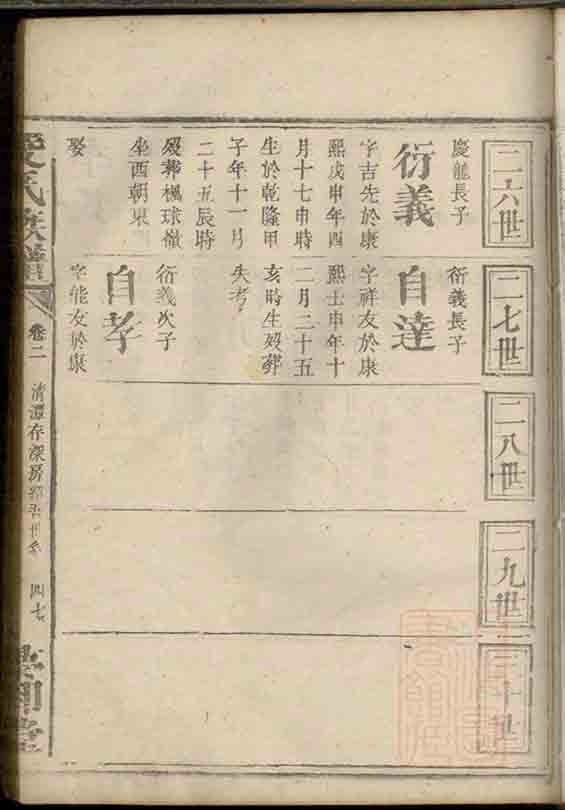 二六世
慶龍長子
衍義
字吉先於康
熙戊申年四
月十七申時
生於乾隆甲
子年十一月
二十五辰時
歿葬楓球嶺
坐西朝東
娶
二七世
衍義長子
自達
字祥友於康
熙壬申年十
二月二十五
亥時生歿葬
失考
衍義次子
自孝
字能友於康
二八世
二九世
三十世
氏族譜
卷二
清潭存深房
四七